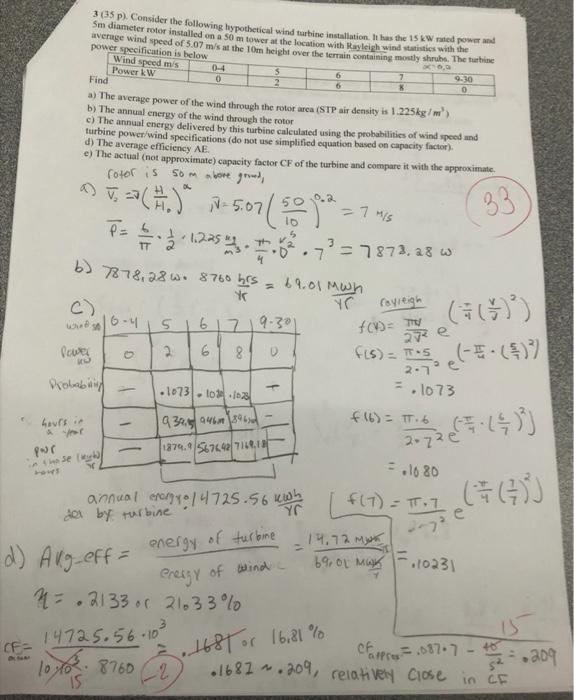 3 (35 p). Consider the following hypothetical wind turbine installation. It has the 15 kW rated power and
5m diameter rotor installed on a 50 m tower at the location with Rayleigh wind statistics with the
average wind speed of 5.07 m/s at the 10m height over the terrain containing mostly shrubs. The turbine
power specification is below
Wind speed m/s 0-4 5 6 7 9-30
Power kW 0 2 6 8 0
Find
a) The average power of the wind through the rotor area (STP air density is 1.225kg/m³)
b) The annual energy of the wind through the rotor
c) The annual energy delivered by this turbine calculated using the probabilities of wind speed and
turbine power/wind specifications (do not use simplified equation based on capacity factor).
d) The average efficiency AE.
e) The actual (not approximate) capacity factor CF of the turbine and compare it with the approximate.
rotor is 50 m above ground,
a) V̄₂ = V̄(H/H₀)^α V̄ = 5.07(50/10)^0.2 = 7 m/s
33
P̄ = 6/π · 1/2 · 1.225 kg/m³ · π/4 · D² · 7³ = 7873.28 w
b) 7878,28 w · 8760 hrs/yr = 69.01 Mwh/yr
c)
rayleigh
f(v) = πv/2v̄² e^(-π/4(v/v̄)²)
wind sp 0-4 5 6 7 9-30
Power kw 0 2 6 8 0
f(5) = π·5/2·7² e^(-π/4·(5/7)²)
= .1073
Probability — .1073 .1080 .1023 —
hours in a year —
f(6) = π·6/2·7² e^(-π/4·(6/7)²)
pwr in those hours — 1879.9 5676.48 7169.18 —
= .1080
annual energy = 14725.56 kwh/yr
by turbine
f(7) = π·7/2·7² e^(-π/4(7/7)²)
= .10231
d) Avg-eff = energy of turbine / energy of wind = 14.72 Mwh / 69.01 Mwh
η = .2133 or 21.33 %
CF = 14725.56·10³ / 10·10³ · 8760 = .1681 or 16.81 %
15
-2
15
CF approx = .087·7 - 10/5² = .209
.1681 ~ .209, relatively close in CF